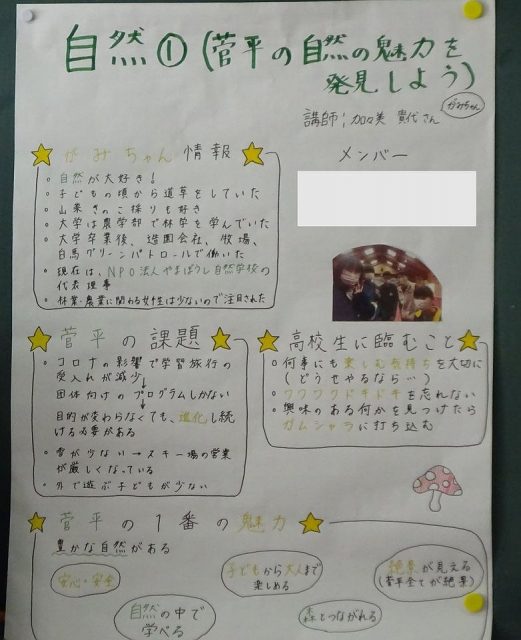 自然①(菅平の自然の魅力を
発見しよう)
講師;加々美 貴代さん
がみちゃん
がみちゃん情報
メンバー
・自然が大好き!
・子どもの頃から道草をしていた
・山菜きのこ採りも好き
・大学は農学部で林学を学んでいた
・大学卒業後、造園会社、牧場、
白馬グリーンパトロールで働いた
・現在は、NPO法人やまぼうし自然学校の
代表理事
・林業・農業に関わる女性は少ないので注目された
菅平の課題
・コロナの影響で学習旅行の
受入れが減少
↓
団体向けのプログラムしかない
↓
目的が変わらなくても、進化し続
ける必要がある
・雪が少ない→スキー場の営業
が厳しくなっている
・外で遊ぶ子どもが少ない
高校生に臨むこと
・何事にも楽しむ気持ちを大切に
(どうせやるなら…)
・ワクワクドキドキを忘れない
・興味のある何かを見つけたら
ガムシャラに打ち込む
菅平の1番の魅力
豊かな自然がある
安心・安全
子どもから大人まで
楽しめる
絶景が見える
(菅平全てが絶景)
自然の中で
学べる
森とつながれる